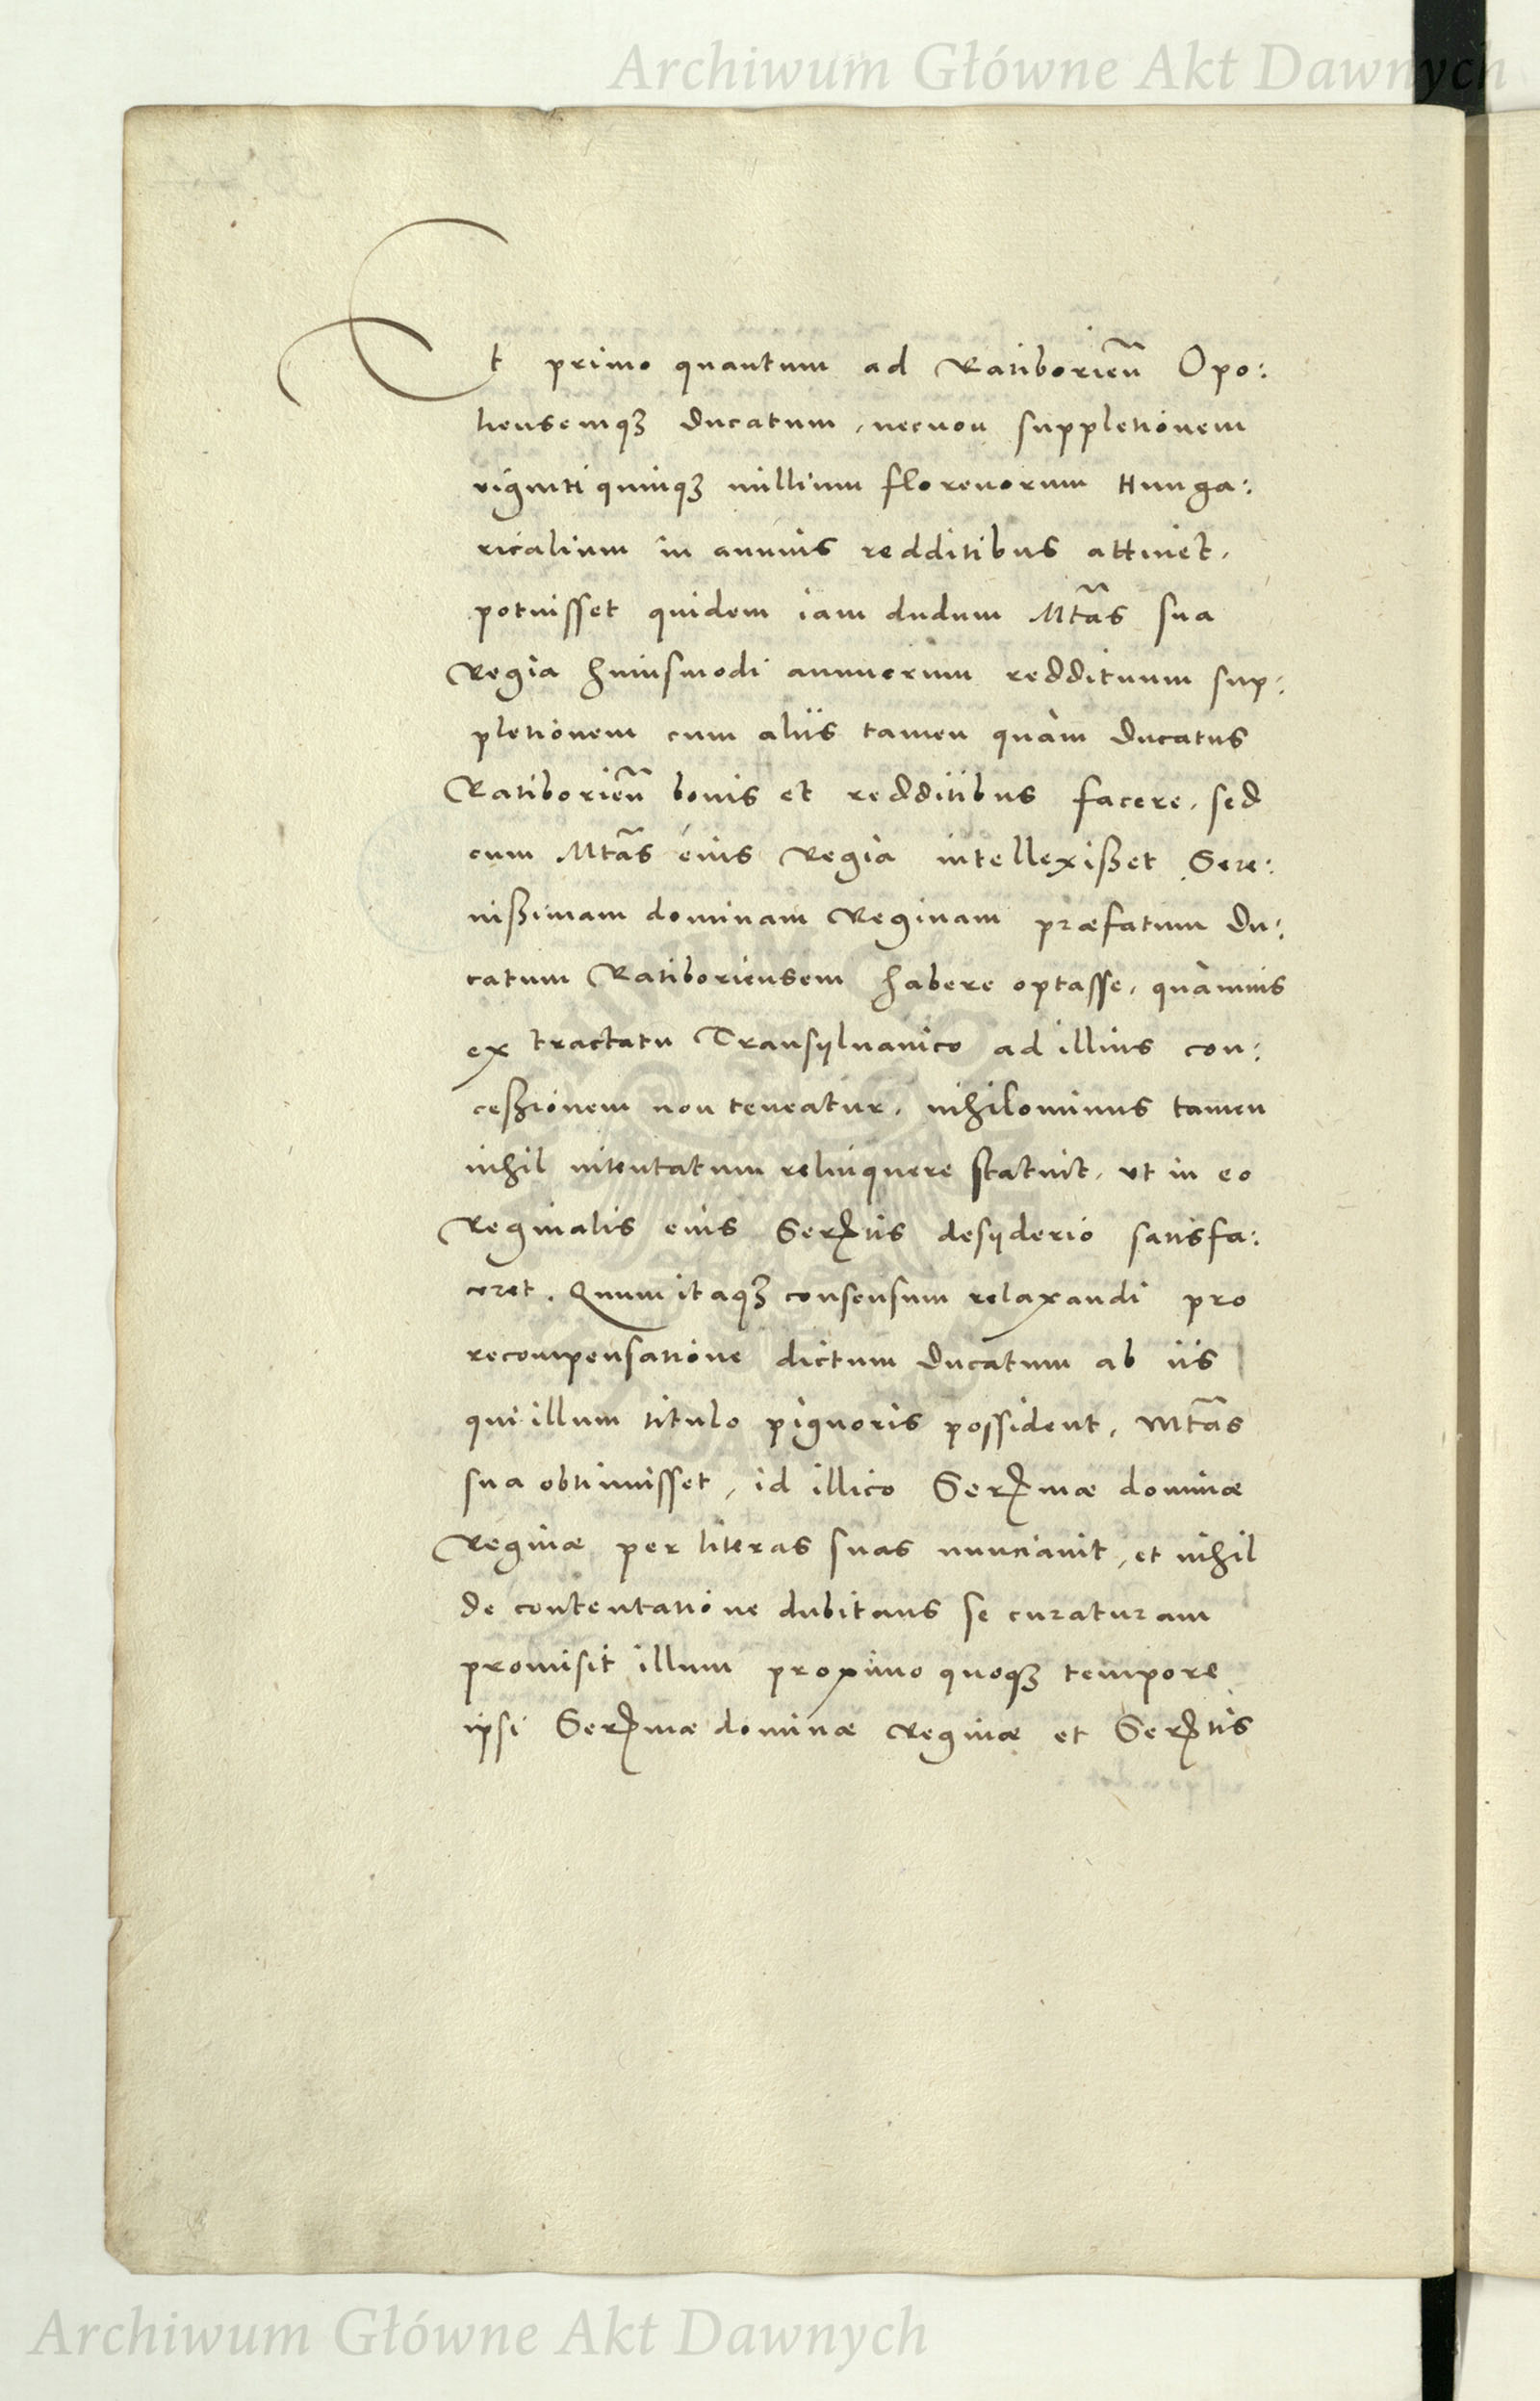 Archiwum Główne Akt Dawnych
Et primo quantum ad Ratiborieñ Opo:
liensemqꝫ Ducatum, necnon suppletionem
viginti quinqꝫ millium florenorum Hunga:
ricalium in annuis redditibus attinet,
potuisset quidem iam dudum Mtãs sua
Regia huiusmodi annuorum reddituum sup:
pletionem cum aliis tamen quàm Ducatus
Ratiborieñ bonis et redditibus facere, sed
cum Mtãs eius Regia intellexißet Sere:
nißimam dominam Reginam præfatum Du:
catum Ratiboriensem habere optasse, quàmuis
ex tractatu Transylvanico ad illius con:
ceßionem non teneatur, nihilominus tamen
nihil intentatum relinquere statuit, ut in eo
Reginalis eius Serᵗⁱˢ desyderio satisfa:
ceret. Quum itaqꝫ consensum relaxandi pro
recompensatione dictum Ducatum ab iis
qui illum titulo pignoris possident, Mtãs
sua obtinuisset, id illico Serᵐæ dominæ
Reginæ per literas suas nunciauit, et nihil
de contentatione dubitans se curaturam
promisit illum proximo quoqꝫ tempore
ipsi Serᵐæ dominæ Reginæ et Serᵗⁱˢ
Archiwum Główne Akt Dawnych